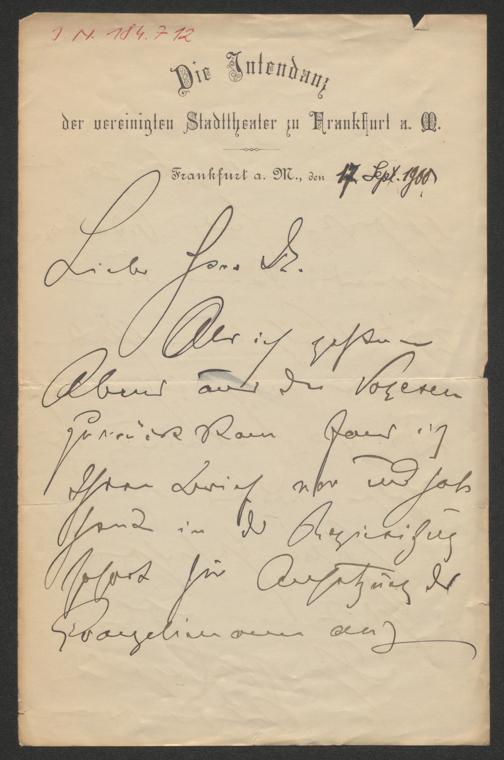 I. N. 184.712
Die Intendanz
der vereinigten Stadttheater zu Frankfurt a. M.
Frankfurt a. M., den 17. Sept. 1900
Lieber Herr Dr.
Als ich gestern
Abend aus den Vogesen
zurück kam fand ich
Ihren Brief vor und hab
heut in der Regiesitzung
sofort für Ansetzung des
Evangelimann